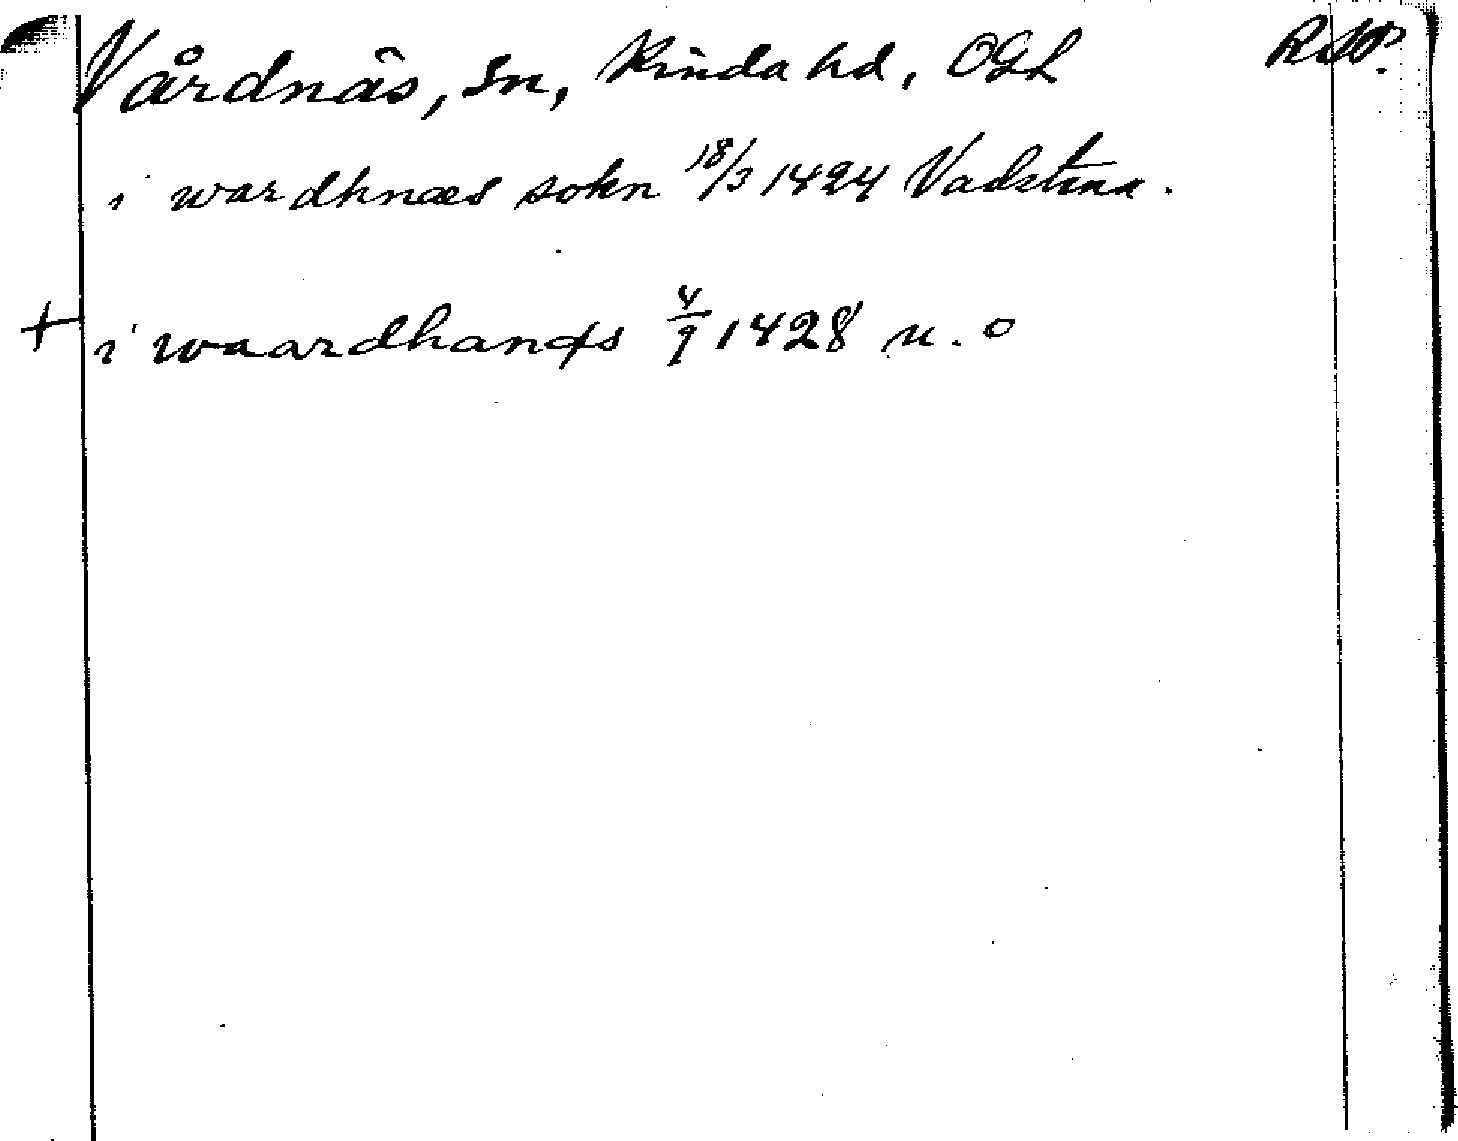 Vårdnäs, Sn, Kinda hd, ÖGL RAP.
i wardhnæs sokn 18/3 1424 Vadstena.
+ i waardhanæs 4/9 1428 u. o